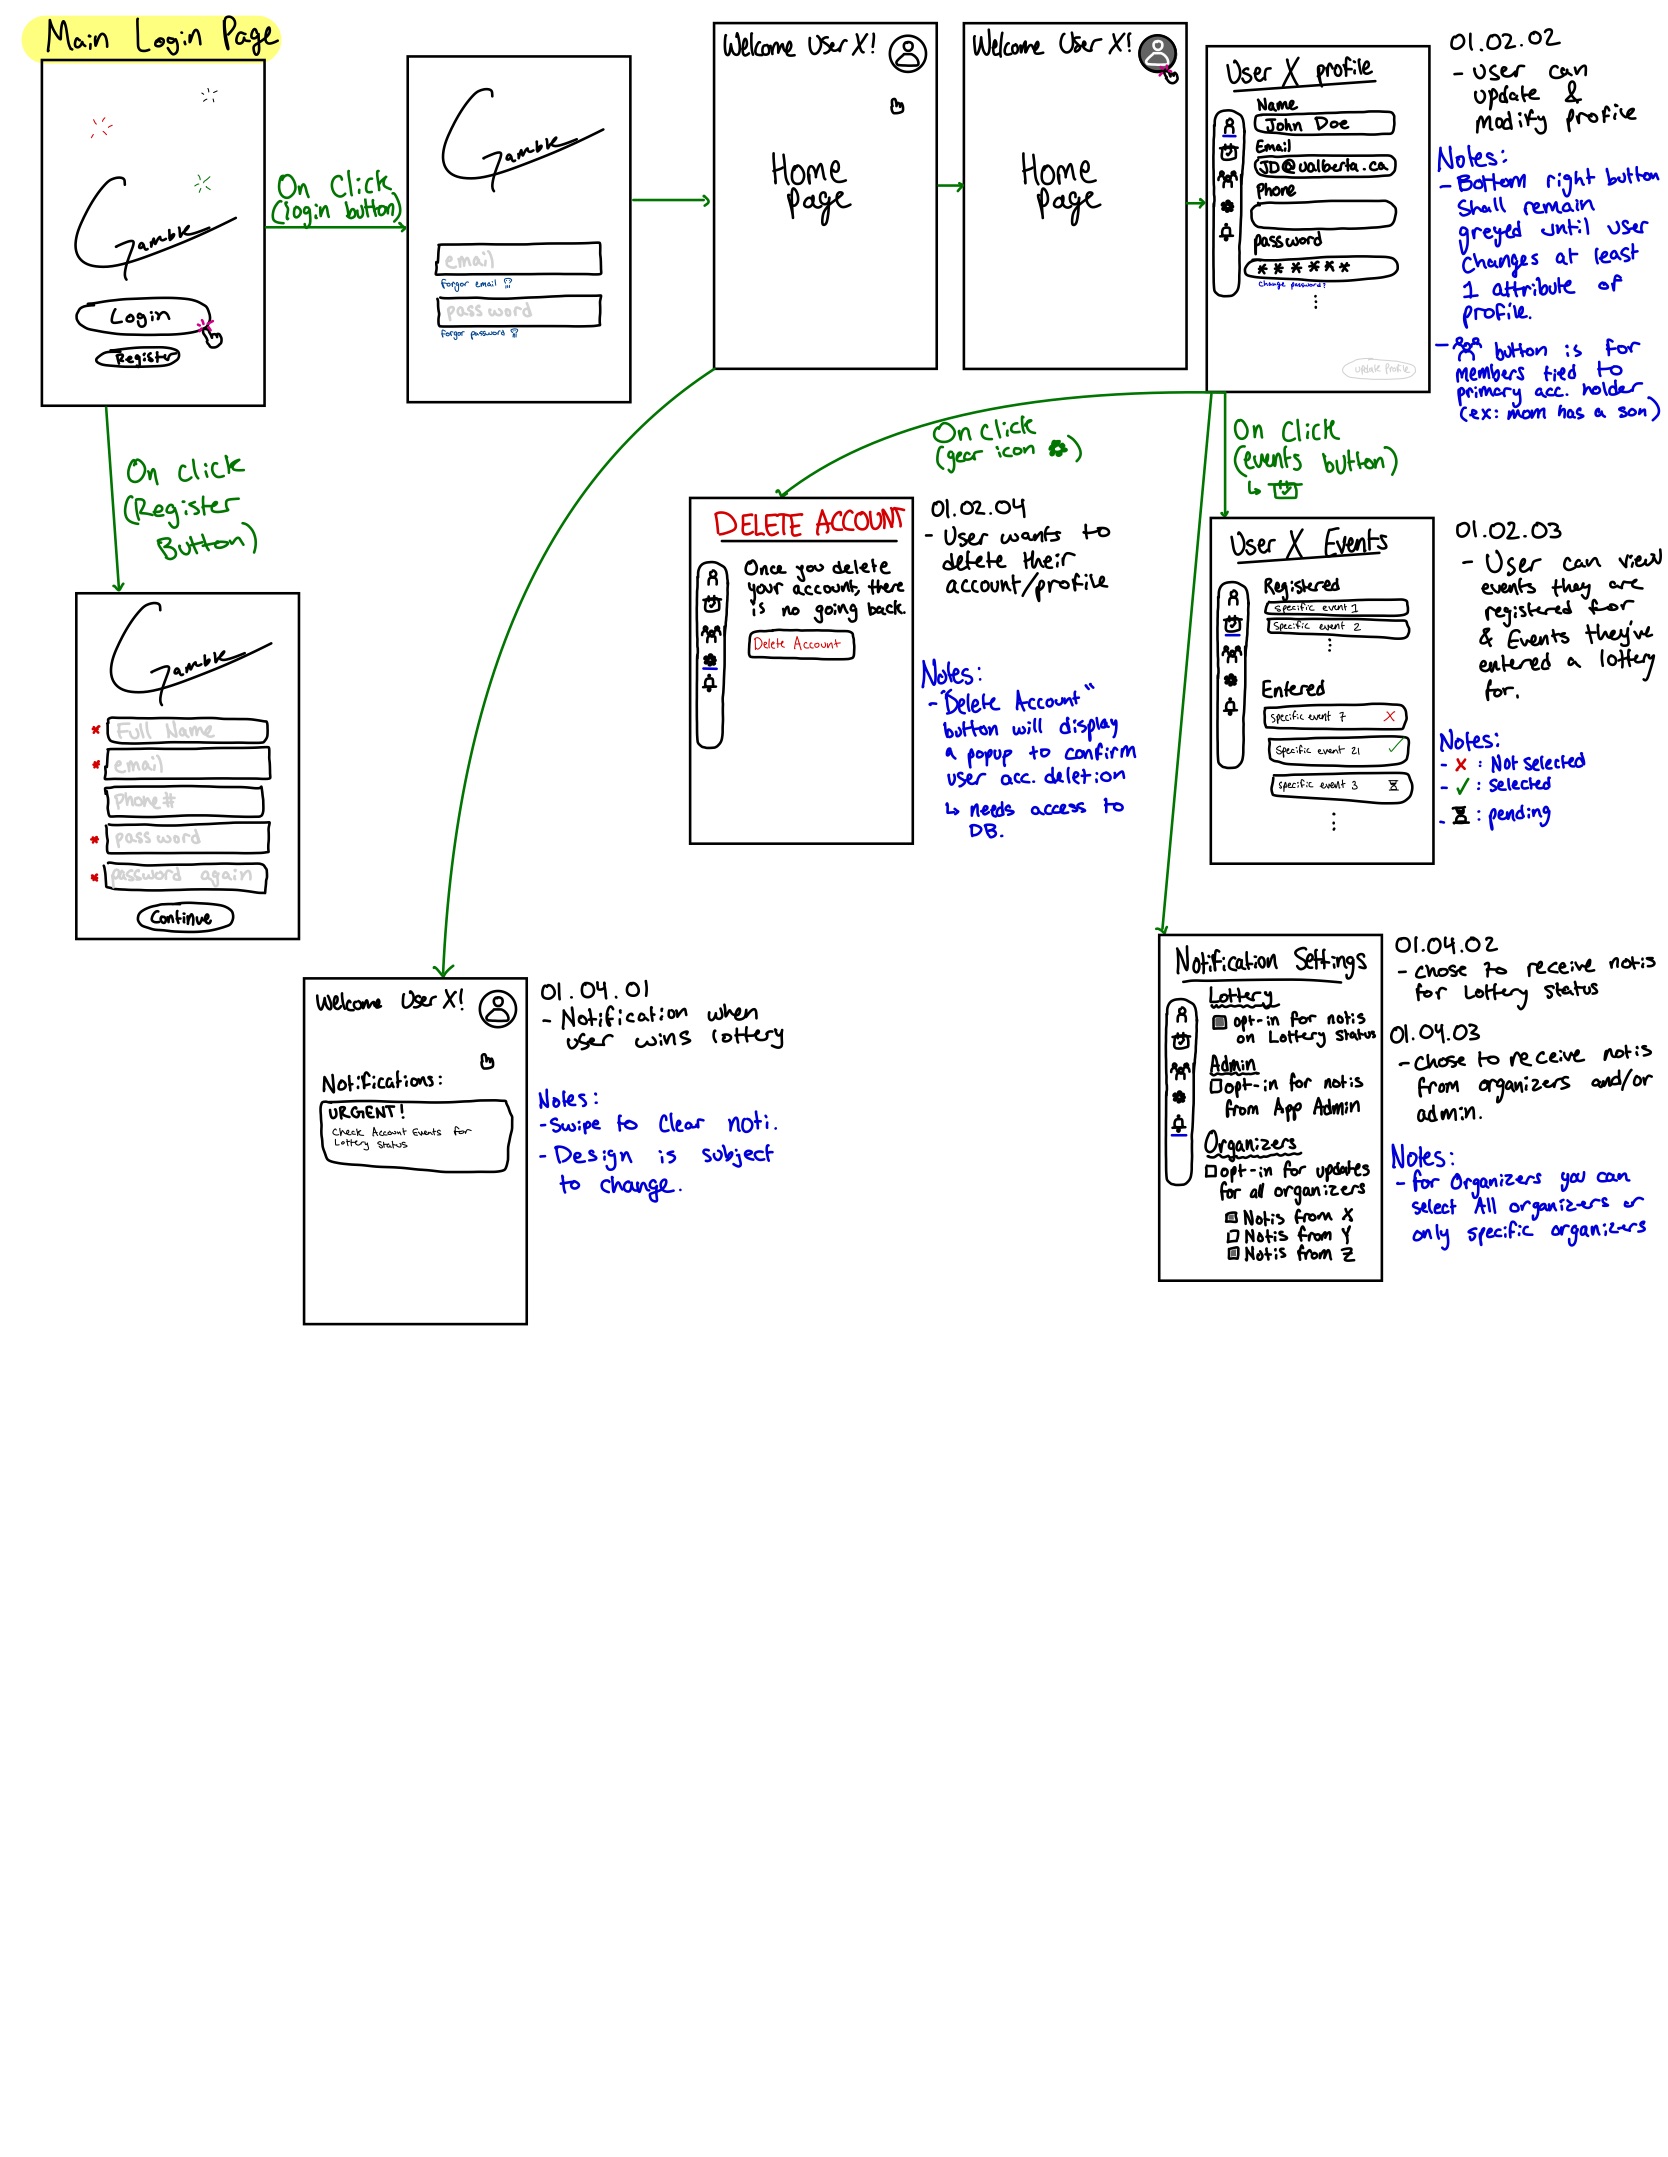 Main Login Page
Gamble
Login
Register
On Click
(login button)
Gamble
email
forgor email
password
forgor password
Welcome User X!
Home
Page
Welcome User X!
Home
Page
User X profile
Name
John Doe
Email
JD@ualberta.ca
Phone
password
******
change password?
update Profile
01.02.02
- user can
update &
Modify profile
Notes:
- Bottom right button
Shall remain
greyed until user
Changes at least
1 attribute of
profile.
- button is for
members tied to
primary acc. holder
(ex: mom has a son)
On click
(Register
Button)
Gamble
* Full Name
* email
Phone#
* password
* password again
Continue
On click
(gear icon )
DELETE ACCOUNT
Once you delete
your account, there
is no going back.
Delete Account
01.02.04
- User wants to
delete their
account/profile
Notes:
- "Delete Account"
button will display
a popup to confirm
user acc. deletion
↳ needs access to
DB.
On Click
(events button)
↳
User X Events
Registered
specific event 1
Specific event 2
Entered
specific event 7
Specific event 21
specific event 3
01.02.03
- User can view
events they are
registered for
& Events they've
entered a lottery
for.
Notes:
- x : Not selected
- ✓ : selected
- : pending
Welcome User X!
Notifications:
URGENT!
Check Account Events for
Lottery Status
01.04.01
- Notification when
user wins lottery
Notes:
- Swipe to Clear noti.
- Design is subject
to change.
Notification Settings
Lottery
opt-in for notis
on Lottery Status
Admin
opt-in for notis
from App Admin
Organizers
opt-in for updates
for all organizers
Notis from X
Notis from Y
Notis from Z
01.04.02
- chose to receive notis
for Lottery status
01.04.03
- chose to receive notis
from organizers and/or
admin.
Notes:
- for Organizers you can
select All organizers or
only specific organizers